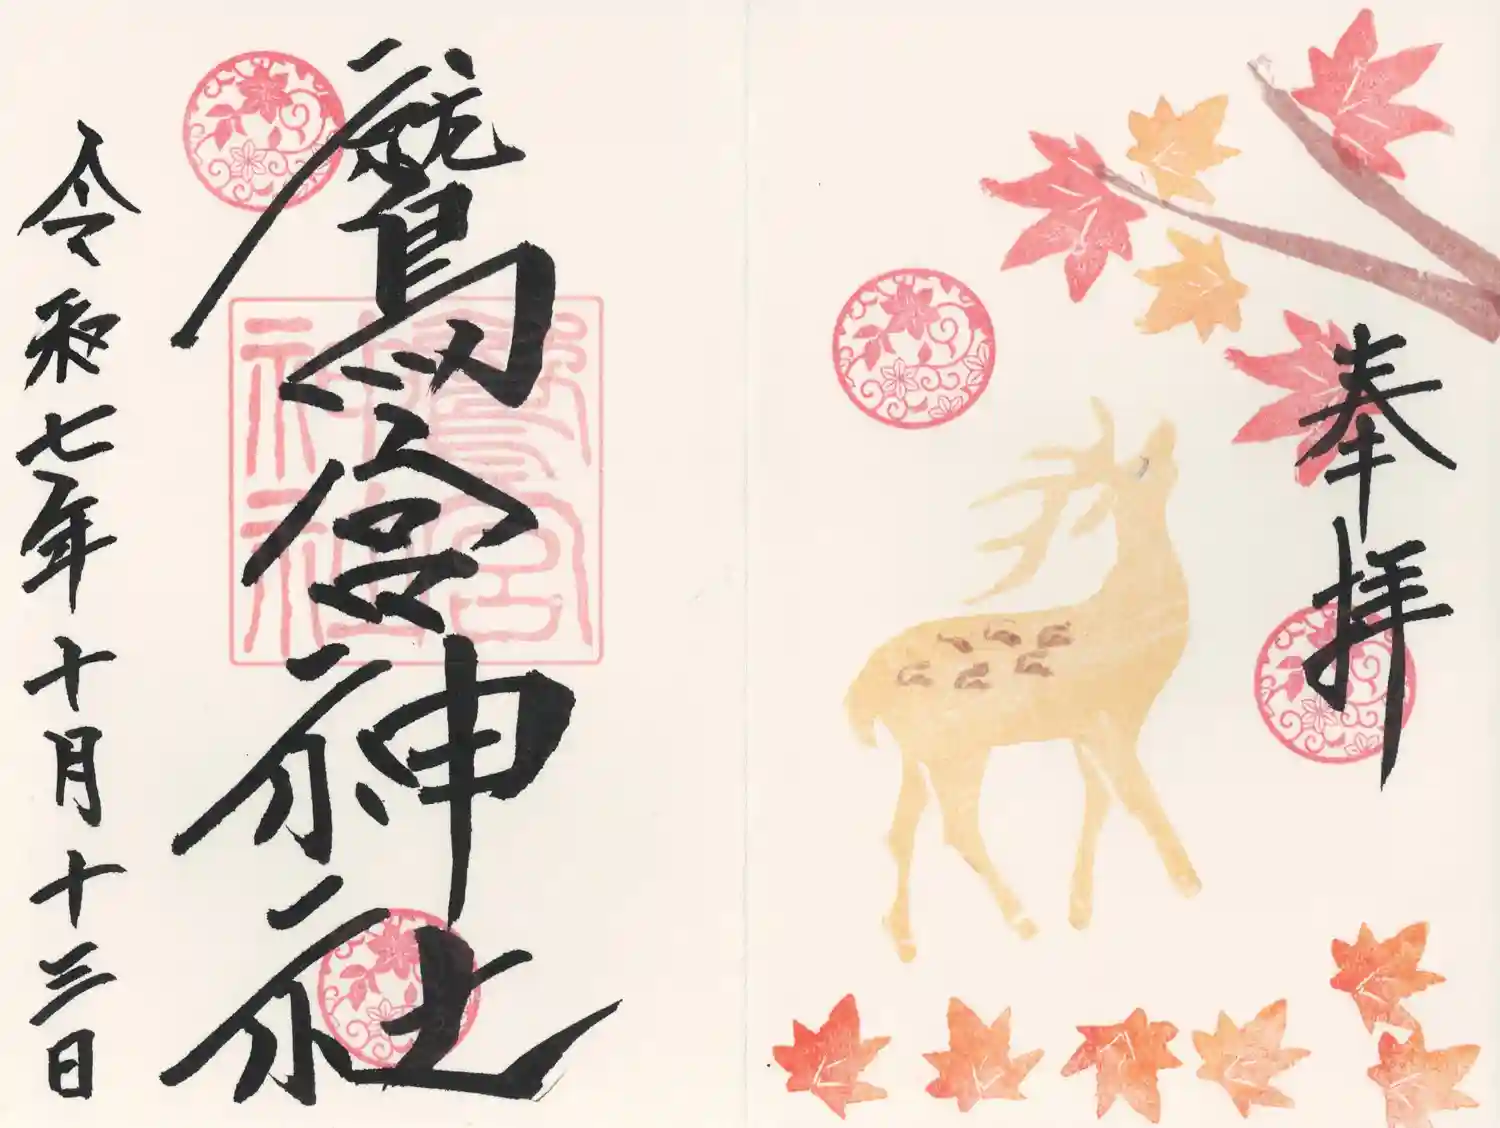 奉拝
鷲宮神社
鷲宮
神社
令和七年十月十三日